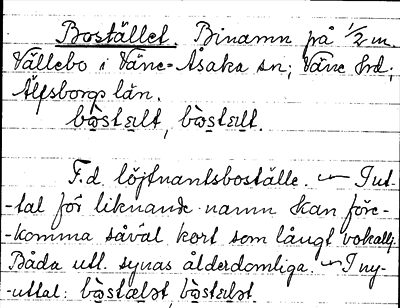 Bostället. Binamn på 1/2 m.
Vällebo i Väne-Åsaka sn; Väne hrd,
Älfsborgs län.
F.d. löjtnantsboställe. — I ut-
-tal för liknande namn kan före-
-komma såväl kort som långt vokallj.
Båda utt. synas ålderdomliga. — I ny-
-uttal: